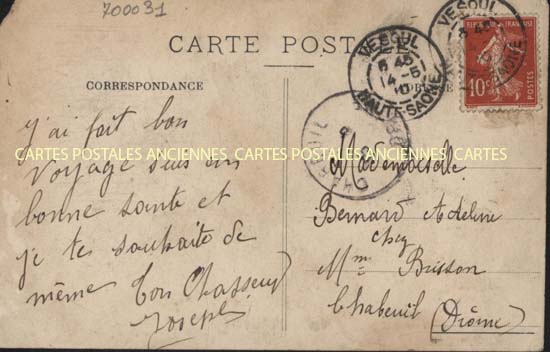 700031
CARTE POSTALE
CORRESPONDANCE
VESOUL
6 45
14-5
10
HAUTE-SAONE
VESOUL
6 45
SAONE
10c
J'ai fait bon
voyage suis en
bonne sante et
je te souhaite de
même ton Chasseur
Joseph
CARTES POSTALES ANCIENNES, CARTES POSTALES ANCIENNES, CARTES POSTALES ANCIENNES
Mademoiselle
Bernard Adeline
chez
Mme Brisson
Chabeuil (Drôme)